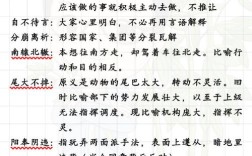 应该做的事就积极主动去做，不推让
自不待言：大家心里明白，不必再用言语解释
分崩离析：形容国家、集团等分裂瓦解
南辕北辙：本想往南方走，却驾着车往北走。比喻行
动和目的相反。
尾大不掉：原义是动物的尾巴太大，转动不灵活。旧
时比喻部下的势力发展壮大，以至于上级
无法指挥调度。现比喻机构庞大，指挥不
灵。
阳奉阴违：指玩弄两面派手法，表面上遵从，暗地里